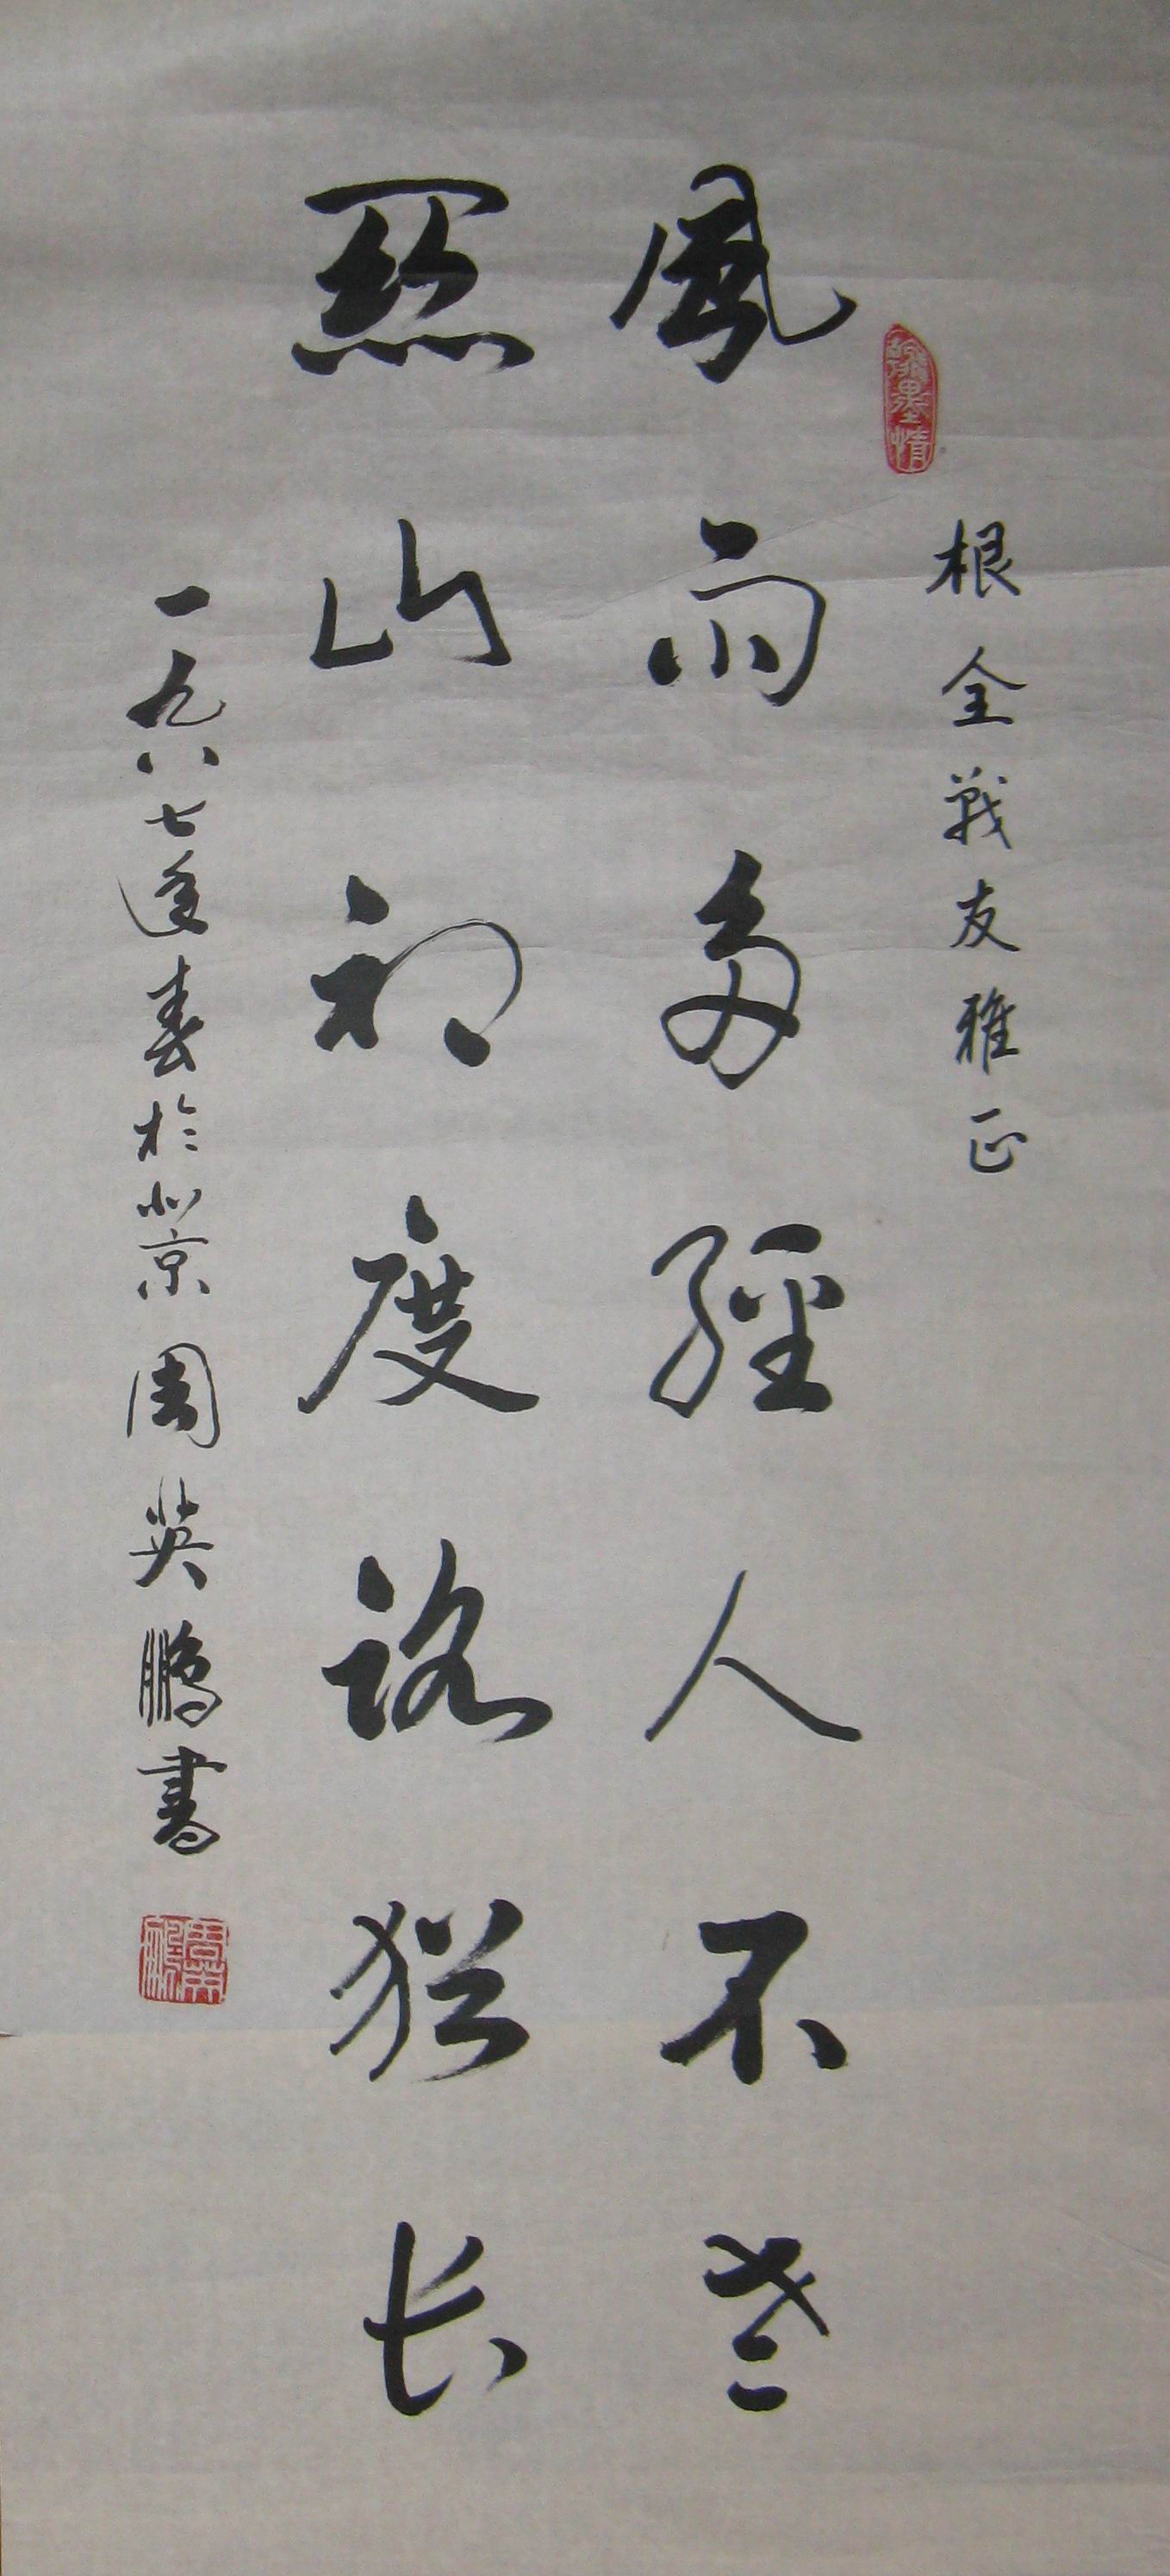 根全戰友雅正
風雨多經人不老
關山初度路猶长
一九八七逢春於北京周英鵬書